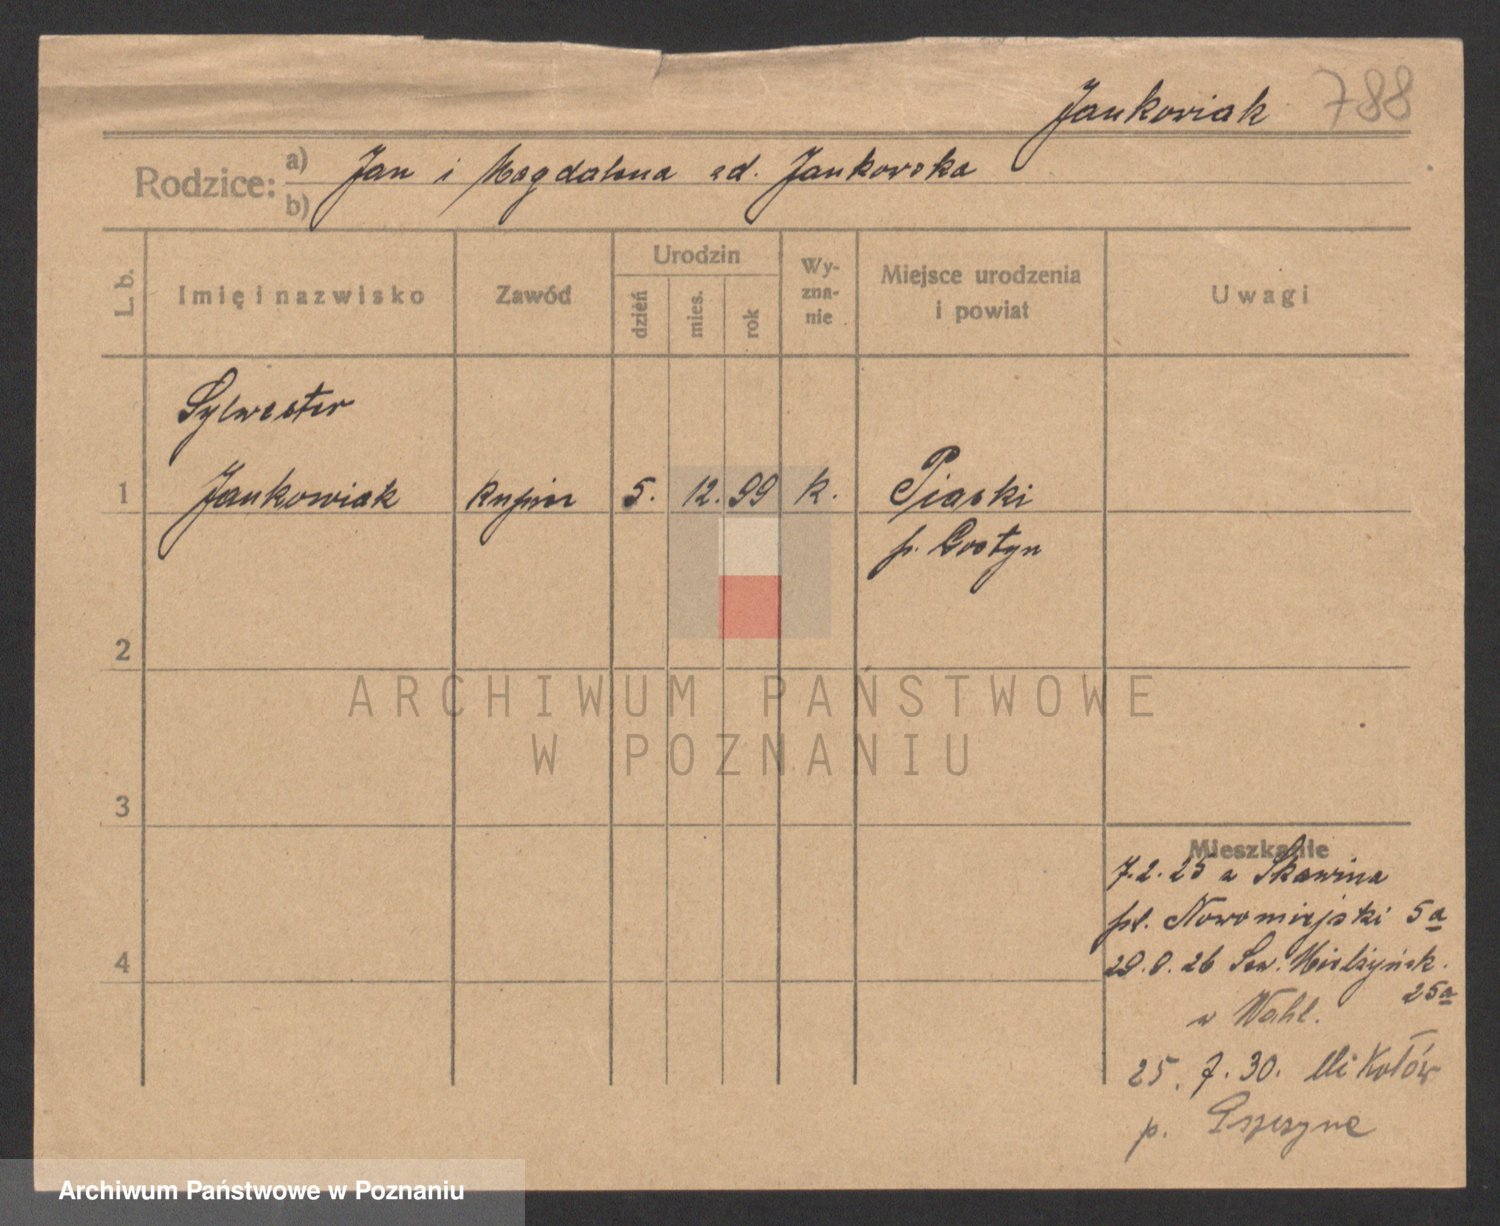 Jankowiak 788
Rodzice: a) Jan i Magdalena zd. Jankowska
b)
L. b.
Imię i nazwisko
Zawód
Urodzin
dzień
mies.
rok
Wy-
zna-
nie
Miejsce urodzenia
i powiat
Uwagi
Sylwester
1 Jankowiak kupiec 5. 12. 99 k. Piaski
p. Gostyn
2
3
4
Mieszkanie
7.2.25 z Skawina
pl. Nowomiejski 5a
29.9.26 Sew. Mielżyńsk.
25a
u Wahl.
25. 7. 30. Mikołów
p. Pszczyna
ARCHIWUM PAŃSTWOWE
W POZNANIU
Archiwum Państwowe w Poznaniu